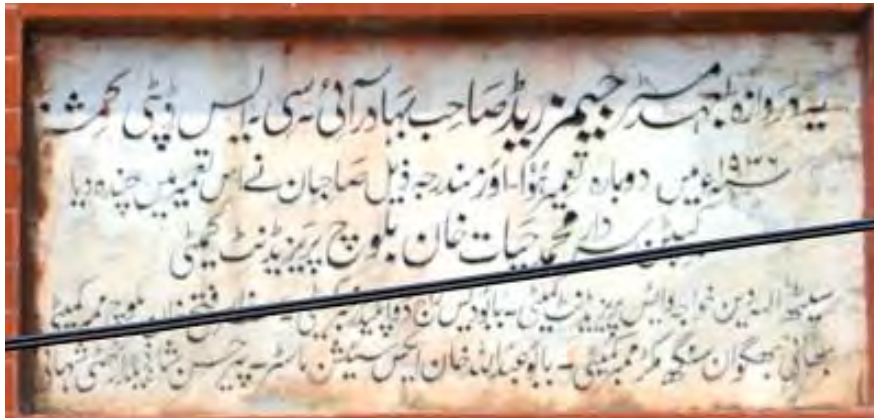 یہ دروازہ بعہد مسٹر جیمز ریڈ صاحب بہادر آئی۔سی۔ایس ڈپٹی کمشنر
۱۹۳۶ء میں دوبارہ تعمیر ہوا۔ اور مندرجہ ذیل صاحبان نے اس تعمیر میں چندہ دیا
کیپٹن سردار محمد حیات خان بلوچ پریزیڈنٹ کمیٹی
سیٹھ اللہ دین خواجہ وائس پریزیڈنٹ کمیٹی۔ بابو دیس راج بلوچ ممبر کمیٹی
بھائی بھگوان سنگھ مکڑ ممبر کمیٹی۔ بابو خان ایکس سٹیشن ماسٹر۔ پیر حسن شاہ